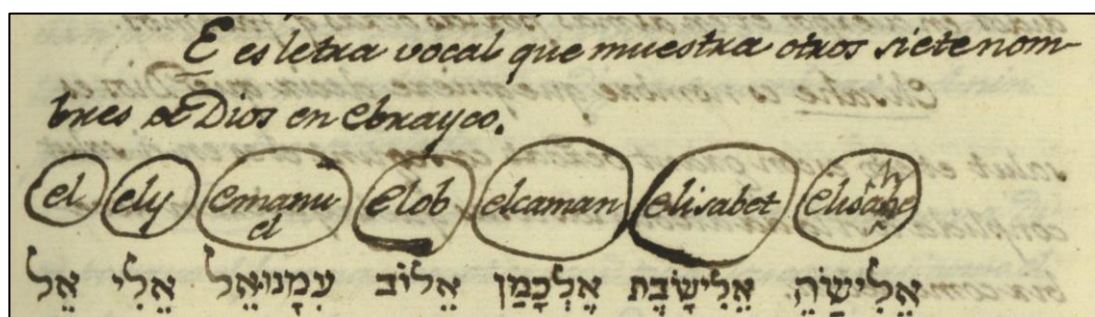 E es letra vocal que muestra otros siete nom-
bres de Dios en ebrayco.
el ely emanu el Elob elcaman elisabet elisahe
אֵל אֵלִי עִמָנוּאֵל אֱלוֹב אֶלְכָּמַן אֱלִישָׂבֶת אֱלִישָׂהֵ